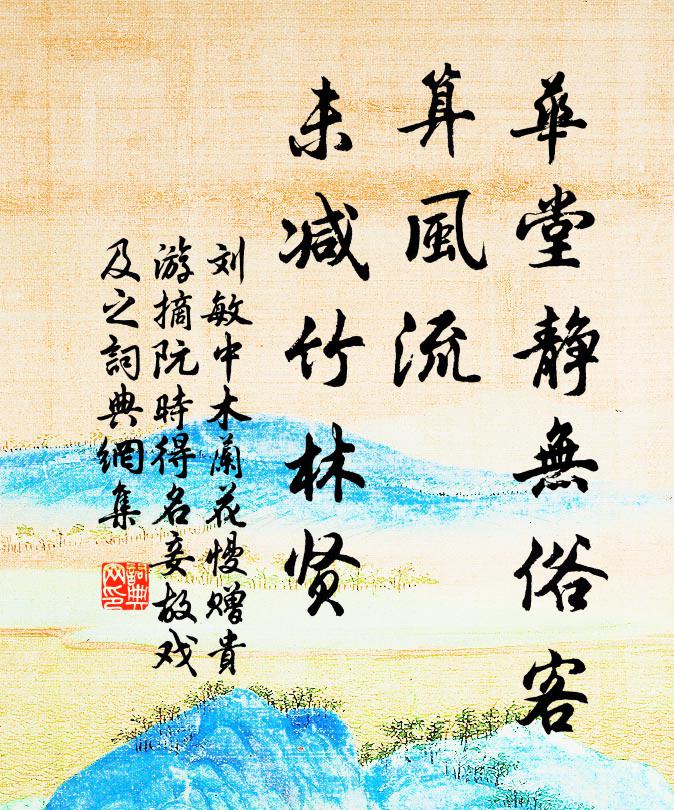 華堂靜無俗客
算風流
未减竹林贤
刘敏中木蘭花慢赠貴
游摘阮時得名妾故戏
及之詞典網集
詞典
网印